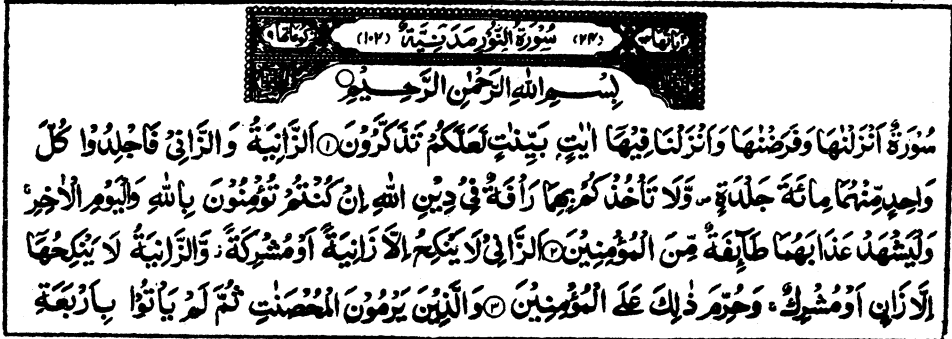 اٰیاتها (۲۴) سُوْرَةُ النُّوْرِ مَدَنِيَّةٌ (۱۰۲) رکوعاتها ۹
بِسْمِ اللهِ الرَّحْمٰنِ الرَّحِيْمِ
سُوْرَةٌ اَنْزَلْنٰهَا وَفَرَضْنٰهَا وَاَنْزَلْنَا فِيْهَا اٰيٰتٍۭ بَيِّنٰتٍ لَّعَلَّكُمْ تَذَكَّرُوْنَ ۝۱ اَلزَّانِيَةُ وَالزَّانِيْ فَاجْلِدُوْا كُلَّ
وَاحِدٍ مِّنْهُمَا مِائَةَ جَلْدَةٍ ۪ وَّلَا تَاْخُذْكُمْ بِهِمَا رَاْفَةٌ فِيْ دِيْنِ اللهِ اِنْ كُنْتُمْ تُؤْمِنُوْنَ بِاللهِ وَالْيَوْمِ الْاٰخِرِ ۚ
وَلْيَشْهَدْ عَذَابَهُمَا طَآئِفَةٌ مِّنَ الْمُؤْمِنِيْنَ ۝۲ اَلزَّانِيْ لَا يَنْكِحُ اِلَّا زَانِيَةً اَوْ مُشْرِكَةً ؗ وَّالزَّانِيَةُ لَا يَنْكِحُهَآ
اِلَّا زَانٍ اَوْ مُشْرِكٌ ۚ وَحُرِّمَ ذٰلِكَ عَلَى الْمُؤْمِنِيْنَ ۝۳ وَالَّذِيْنَ يَرْمُوْنَ الْمُحْصَنٰتِ ثُمَّ لَمْ يَاْتُوْا بِاَرْبَعَةِ